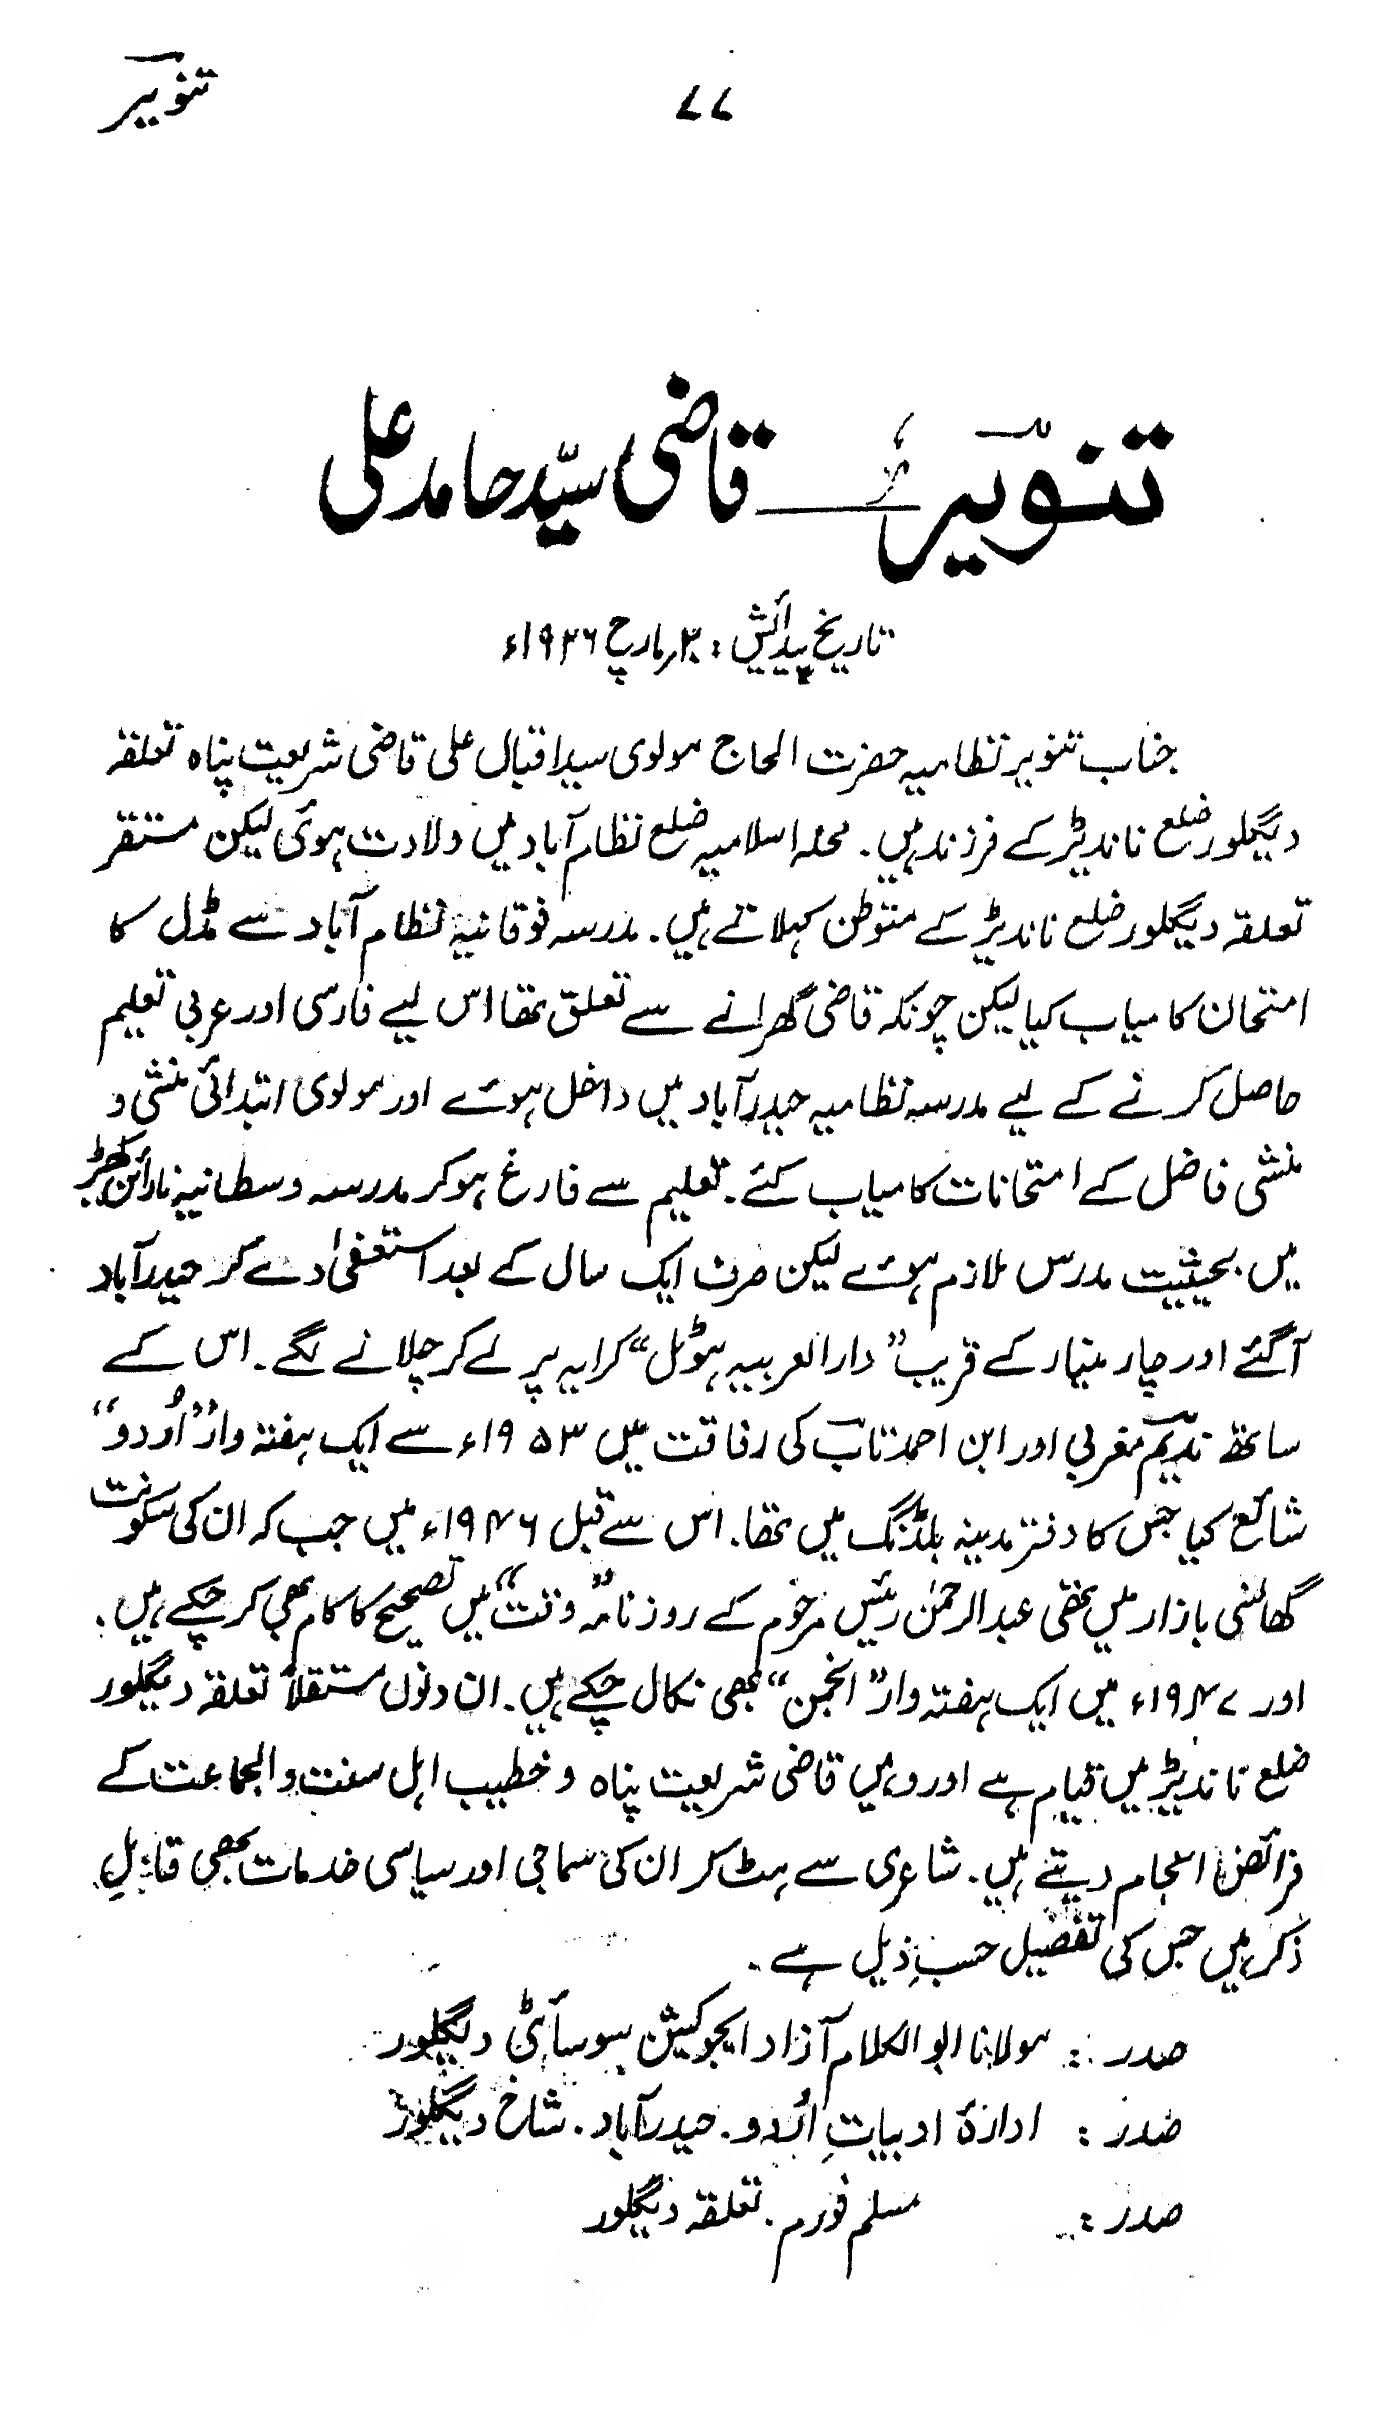 تنویرؔ
۷۷
تنویرؔ ــــ قاضی سیّد حامد علی
تاریخ پیدائش : ۳؍مارچ ۱۹۳۶ء
جناب تنویر نظامیہ حضرت الحاج مولوی سید اقبال علی قاضی شریعت پناہ تعلقہ
دیگلور ضلع ناندیڑ کے فرزند ہیں۔ محلہ اسلامیہ ضلع نظام آباد میں ولادت ہوئی لیکن مستقر
تعلقہ دیگلور ضلع ناندیڑ کے متوطن کہلاتے ہیں۔ مدرسہ فوقانیہ نظام آباد سے مڈل کا
امتحان کامیاب کیا لیکن چونکہ قاضی گھرانے سے تعلق تھا اس لیے فارسی اور عربی تعلیم
حاصل کرنے کے لیے مدرسہ نظامیہ حیدرآباد میں داخل ہوئے اور مولوی ابتدائی منشی و
منشی فاضل کے امتحانات کامیاب کئے۔ تعلیم سے فارغ ہوکر مدرسہ وسطانیہ نارائن کھیڑ
میں بحیثیت مدرس ملازم ہوئے لیکن صرف ایک سال کے بعد استعفیٰ دے کر حیدرآباد
آگئے اور چار مینار کے قریب ”دارالعربیہ ہوٹل“ کرایہ پر لے کر چلانے لگے۔ اس کے
ساتھ ندیمؔ مغربی اور ابن احمد تابؔ کی رفاقت میں ۱۹۵۳ء سے ایک ہفتہ وار ”اُردو“
شائع کیا جس کا دفتر مدینہ بلڈنگ میں تھا۔ اس سے قبل ۱۹۴۶ء میں جب کہ ان کی سکونت
گھانسی بازار میں تھی عبدالرحمٰن رئیس مرحوم کے روزنامہ ”وقت“ میں تصحیح کا کام بھی کر چکے ہیں۔
اور ۱۹۴۷ء میں ایک ہفتہ وار ”انجمن“ بھی نکال چکے ہیں۔ ان دنوں مستقلاً تعلقہ دیگلور
ضلع ناندیڑ میں قیام ہے اور وہیں قاضی شریعت پناہ و خطیب اہل سنت والجماعت کے
فرائض انجام دیتے ہیں۔ شاعری سے ہٹ کر ان کی سماجی اور سیاسی خدمات بھی قابلِ
ذکر ہیں جس کی تفصیل حسبِ ذیل ہے۔
صدر : مولانا ابوالکلام آزاد ایجوکیشن سوسائٹی دیگلور
صدر : ادارۂ ادبیاتِ اُردو۔ حیدرآباد۔ شاخ دیگلور
صدر : مسلم فورم۔ تعلقہ دیگلور